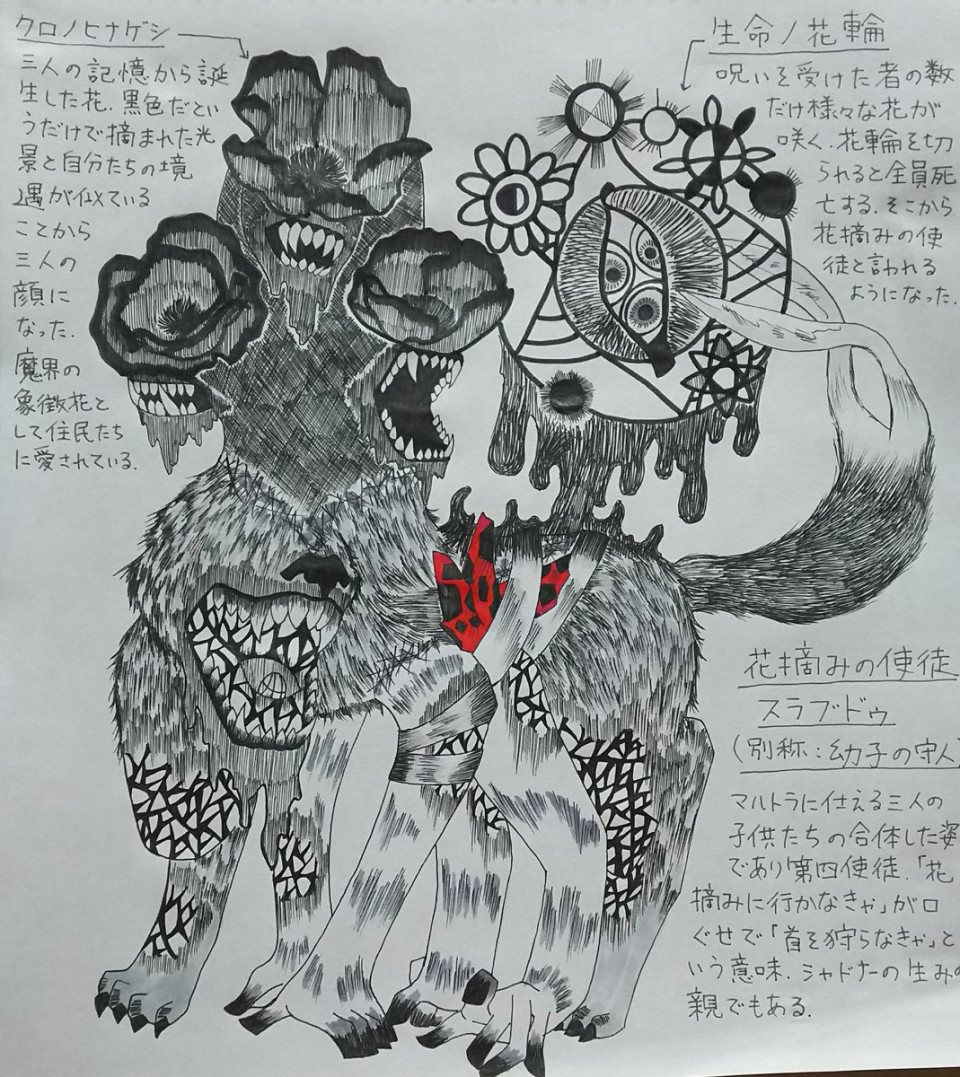 クロノヒナゲシ
三人の記憶から誕
生した花。黒色だとい
うだけで摘まれた光
景と自分たちの境
遇が似ている
ことから
三人の
顔に
なった。
魔界の
象徴花と
して住民たち
に愛されている。
生命ノ花輪
呪いを受けた者の数
だけ様々な花が
咲く。花輪を切
られると全員死
亡する。そこから
花摘みの使
徒と言われる
ようになった。
花摘みの使徒
スラブ・ドゥ
(別称:幼子の守人)
マルトラに仕える三人の
子供たちの合体した姿
であり第四使徒。「花
摘みに行かなきゃ」が口
ぐせで「首を狩らなきゃ」と
いう意味。シャドナーの生みの
親でもある。